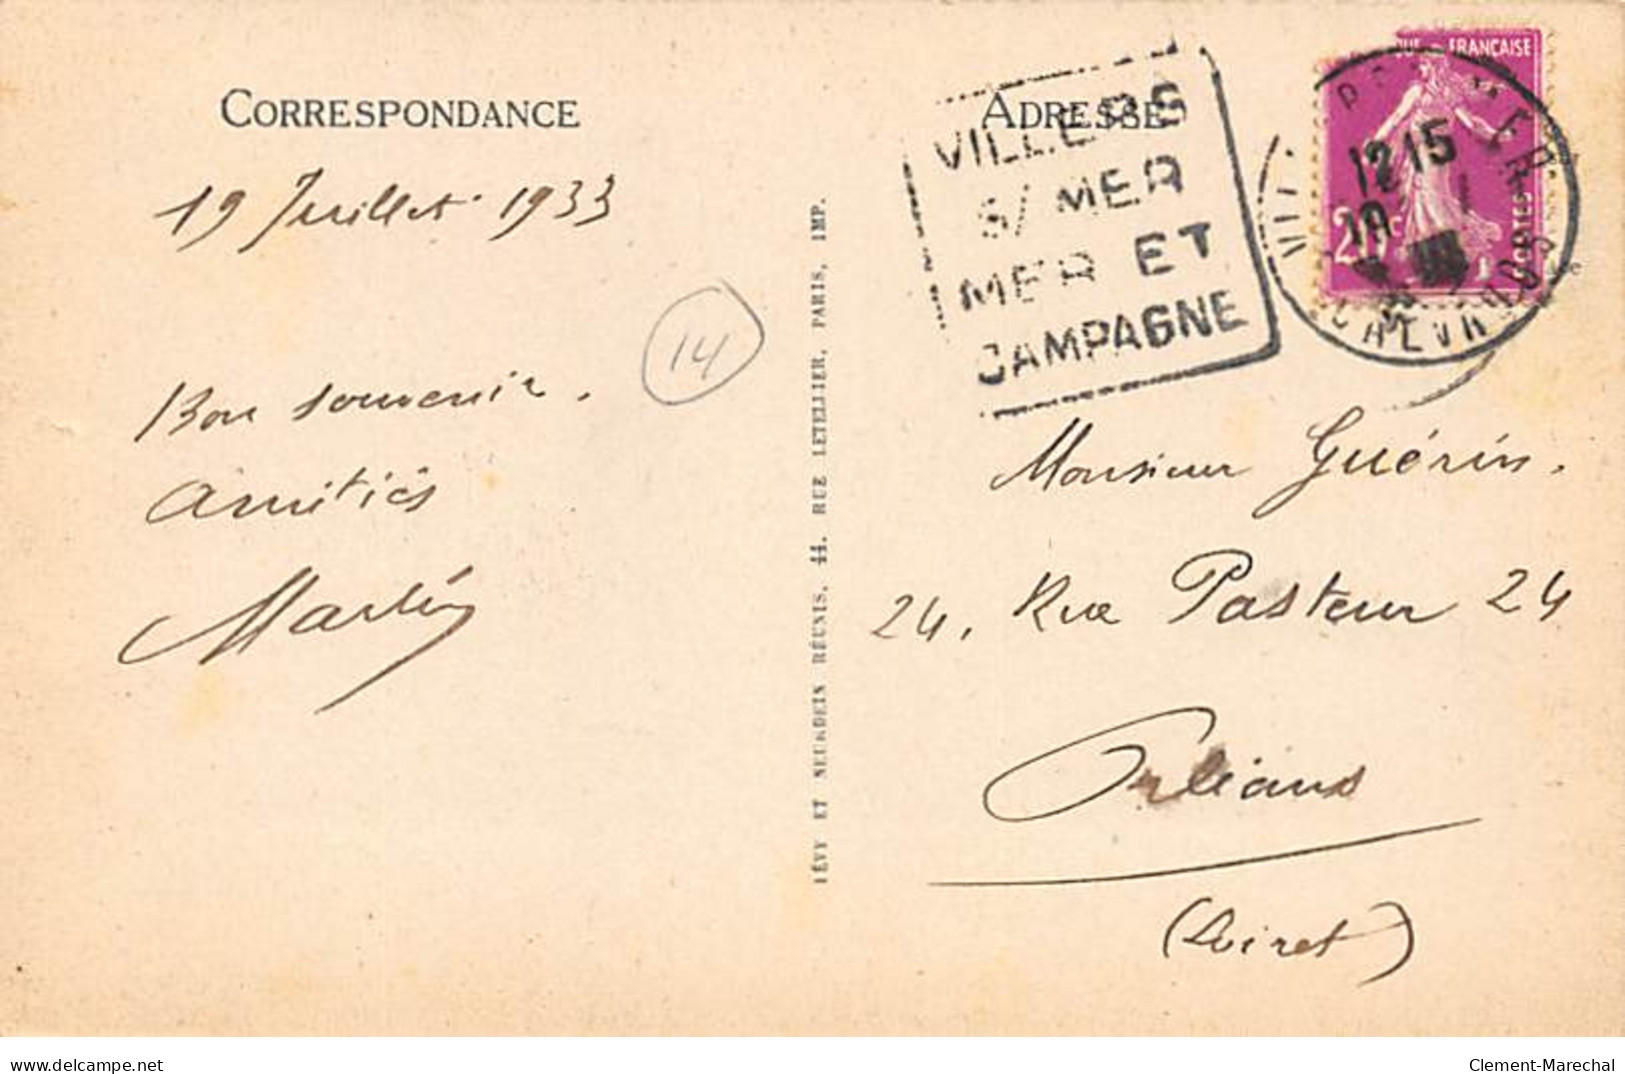 CORRESPONDANCE
19 Juillet 1933
14
Bon souvenir.
Amitiés
LÉVY ET NEURDEIN RÉUNIS, 44, RUE LETELLIER, PARIS, IMP.
ADRESSE
VILLERS
S/ MER
MER ET
CAMPAGNE
FRANÇAISE
POSTES
12 15
19
Monsieur Guérin.
24, Rue Pasteur 24
Orléans
(Loiret)
delcampe.net
Clement-Marechal